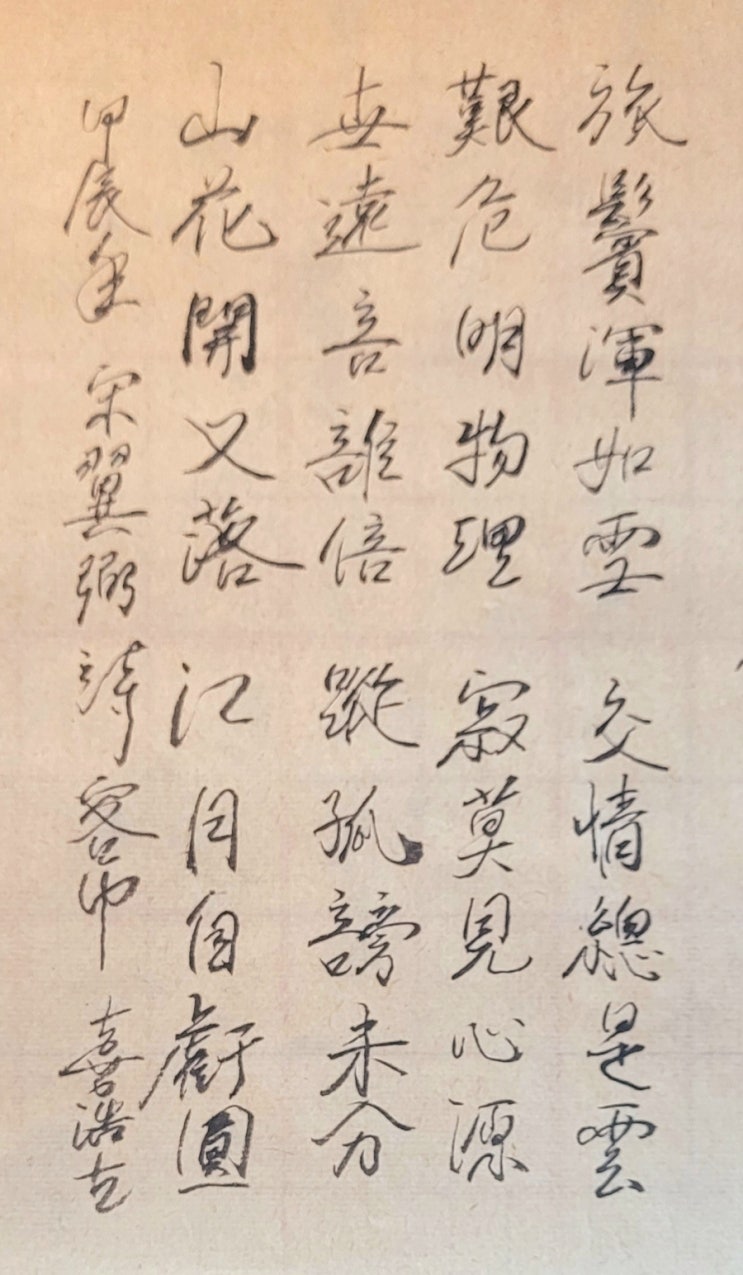 旅鬢渾如雪 交情總是雲
艱危明物理 寂莫見心源
世遠言誰信 蹤孤謗未分
山花開又落 江月自虧圓
甲辰年 宋翼弼詩 客中 喜浩書